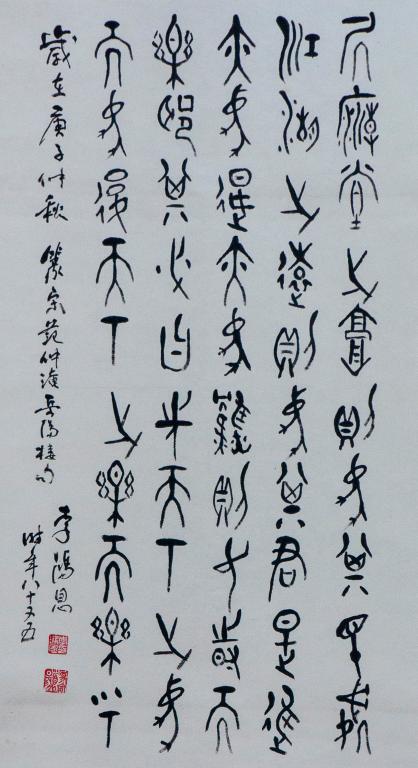 居廟堂之高則憂其民處
江湖之遠則憂其君是進
亦憂退亦憂然則何時而
樂耶其必曰先天下之憂
而憂後天下之樂而樂乎
歲在庚子仲秋 篆宋范仲淹岳陽樓句
李陽恩
時年八十又五